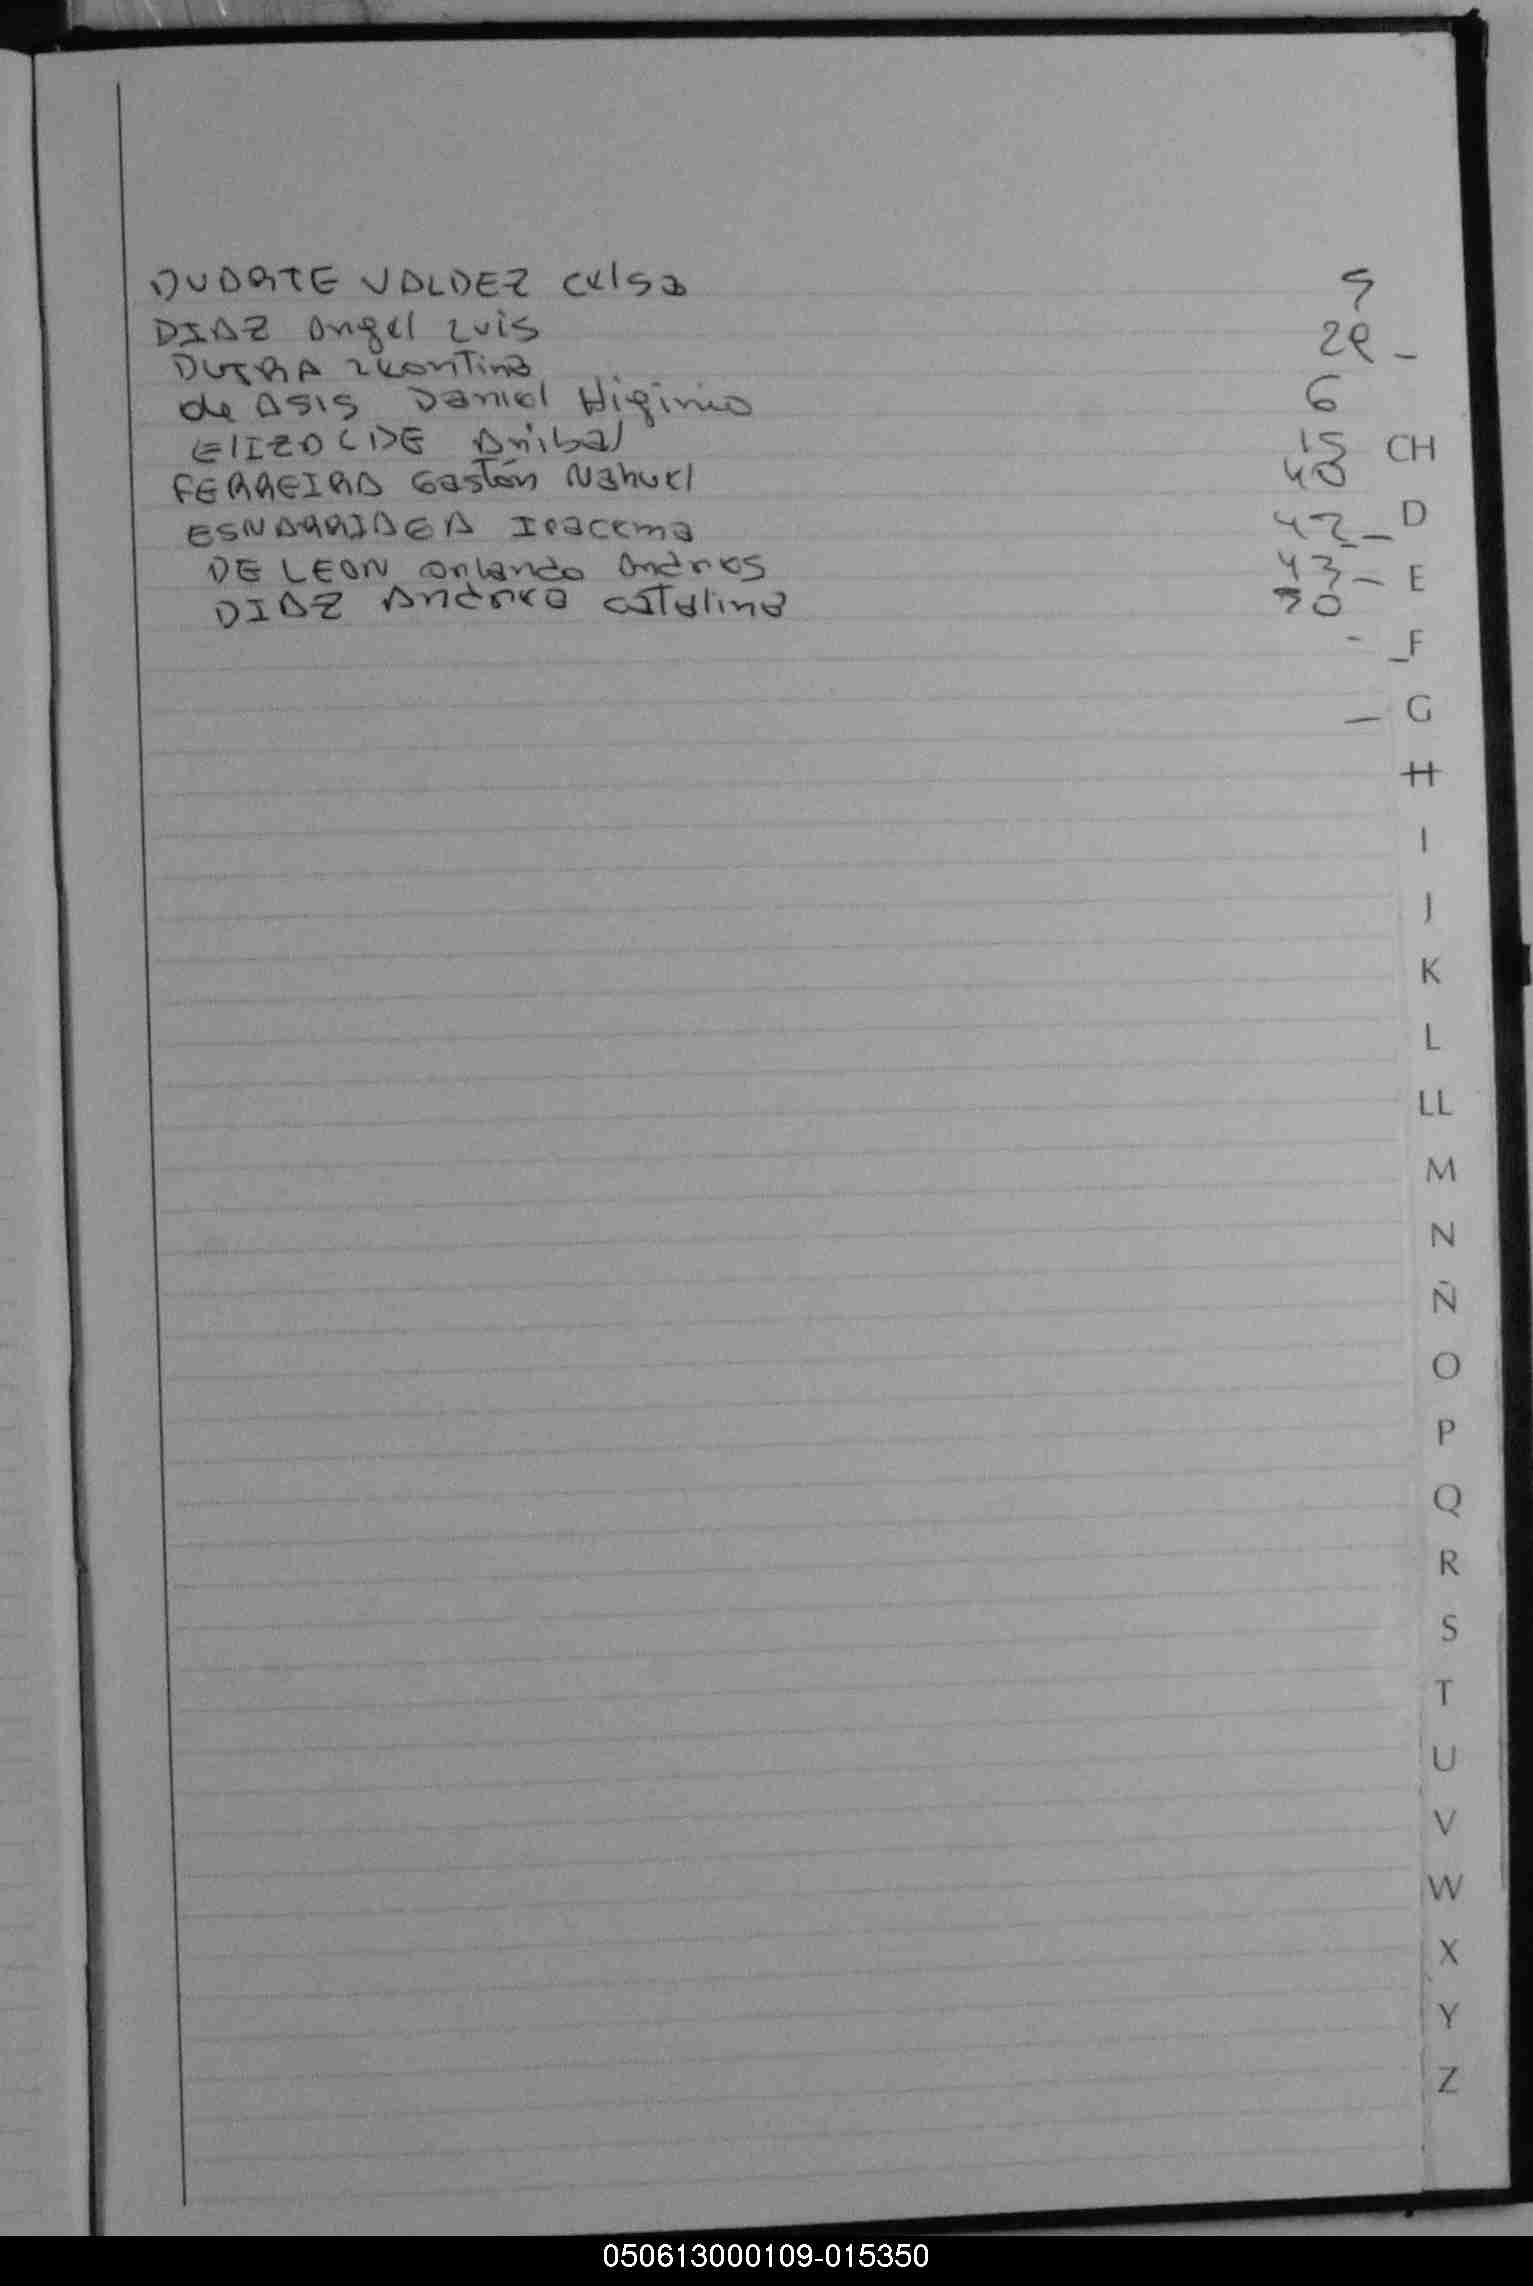 DUARTE VALDEZ Celsa 5
DIAZ Angel Luis 29 -
DUTRA Leontina
de ASIS Daniel Higinio 6
ELIZOLIDE Aníbal 15 CH
FERREIRA Gastón Nahuel 40
ESNARRIAGA Iracema 42 - D
DE LEON Orlando Andres 43 - E
DIAZ Andrea Catalina 50
F
G
H
I
J
K
L
LL
M
N
Ñ
O
P
Q
R
S
T
U
V
W
X
Y
Z
050613000109-015350